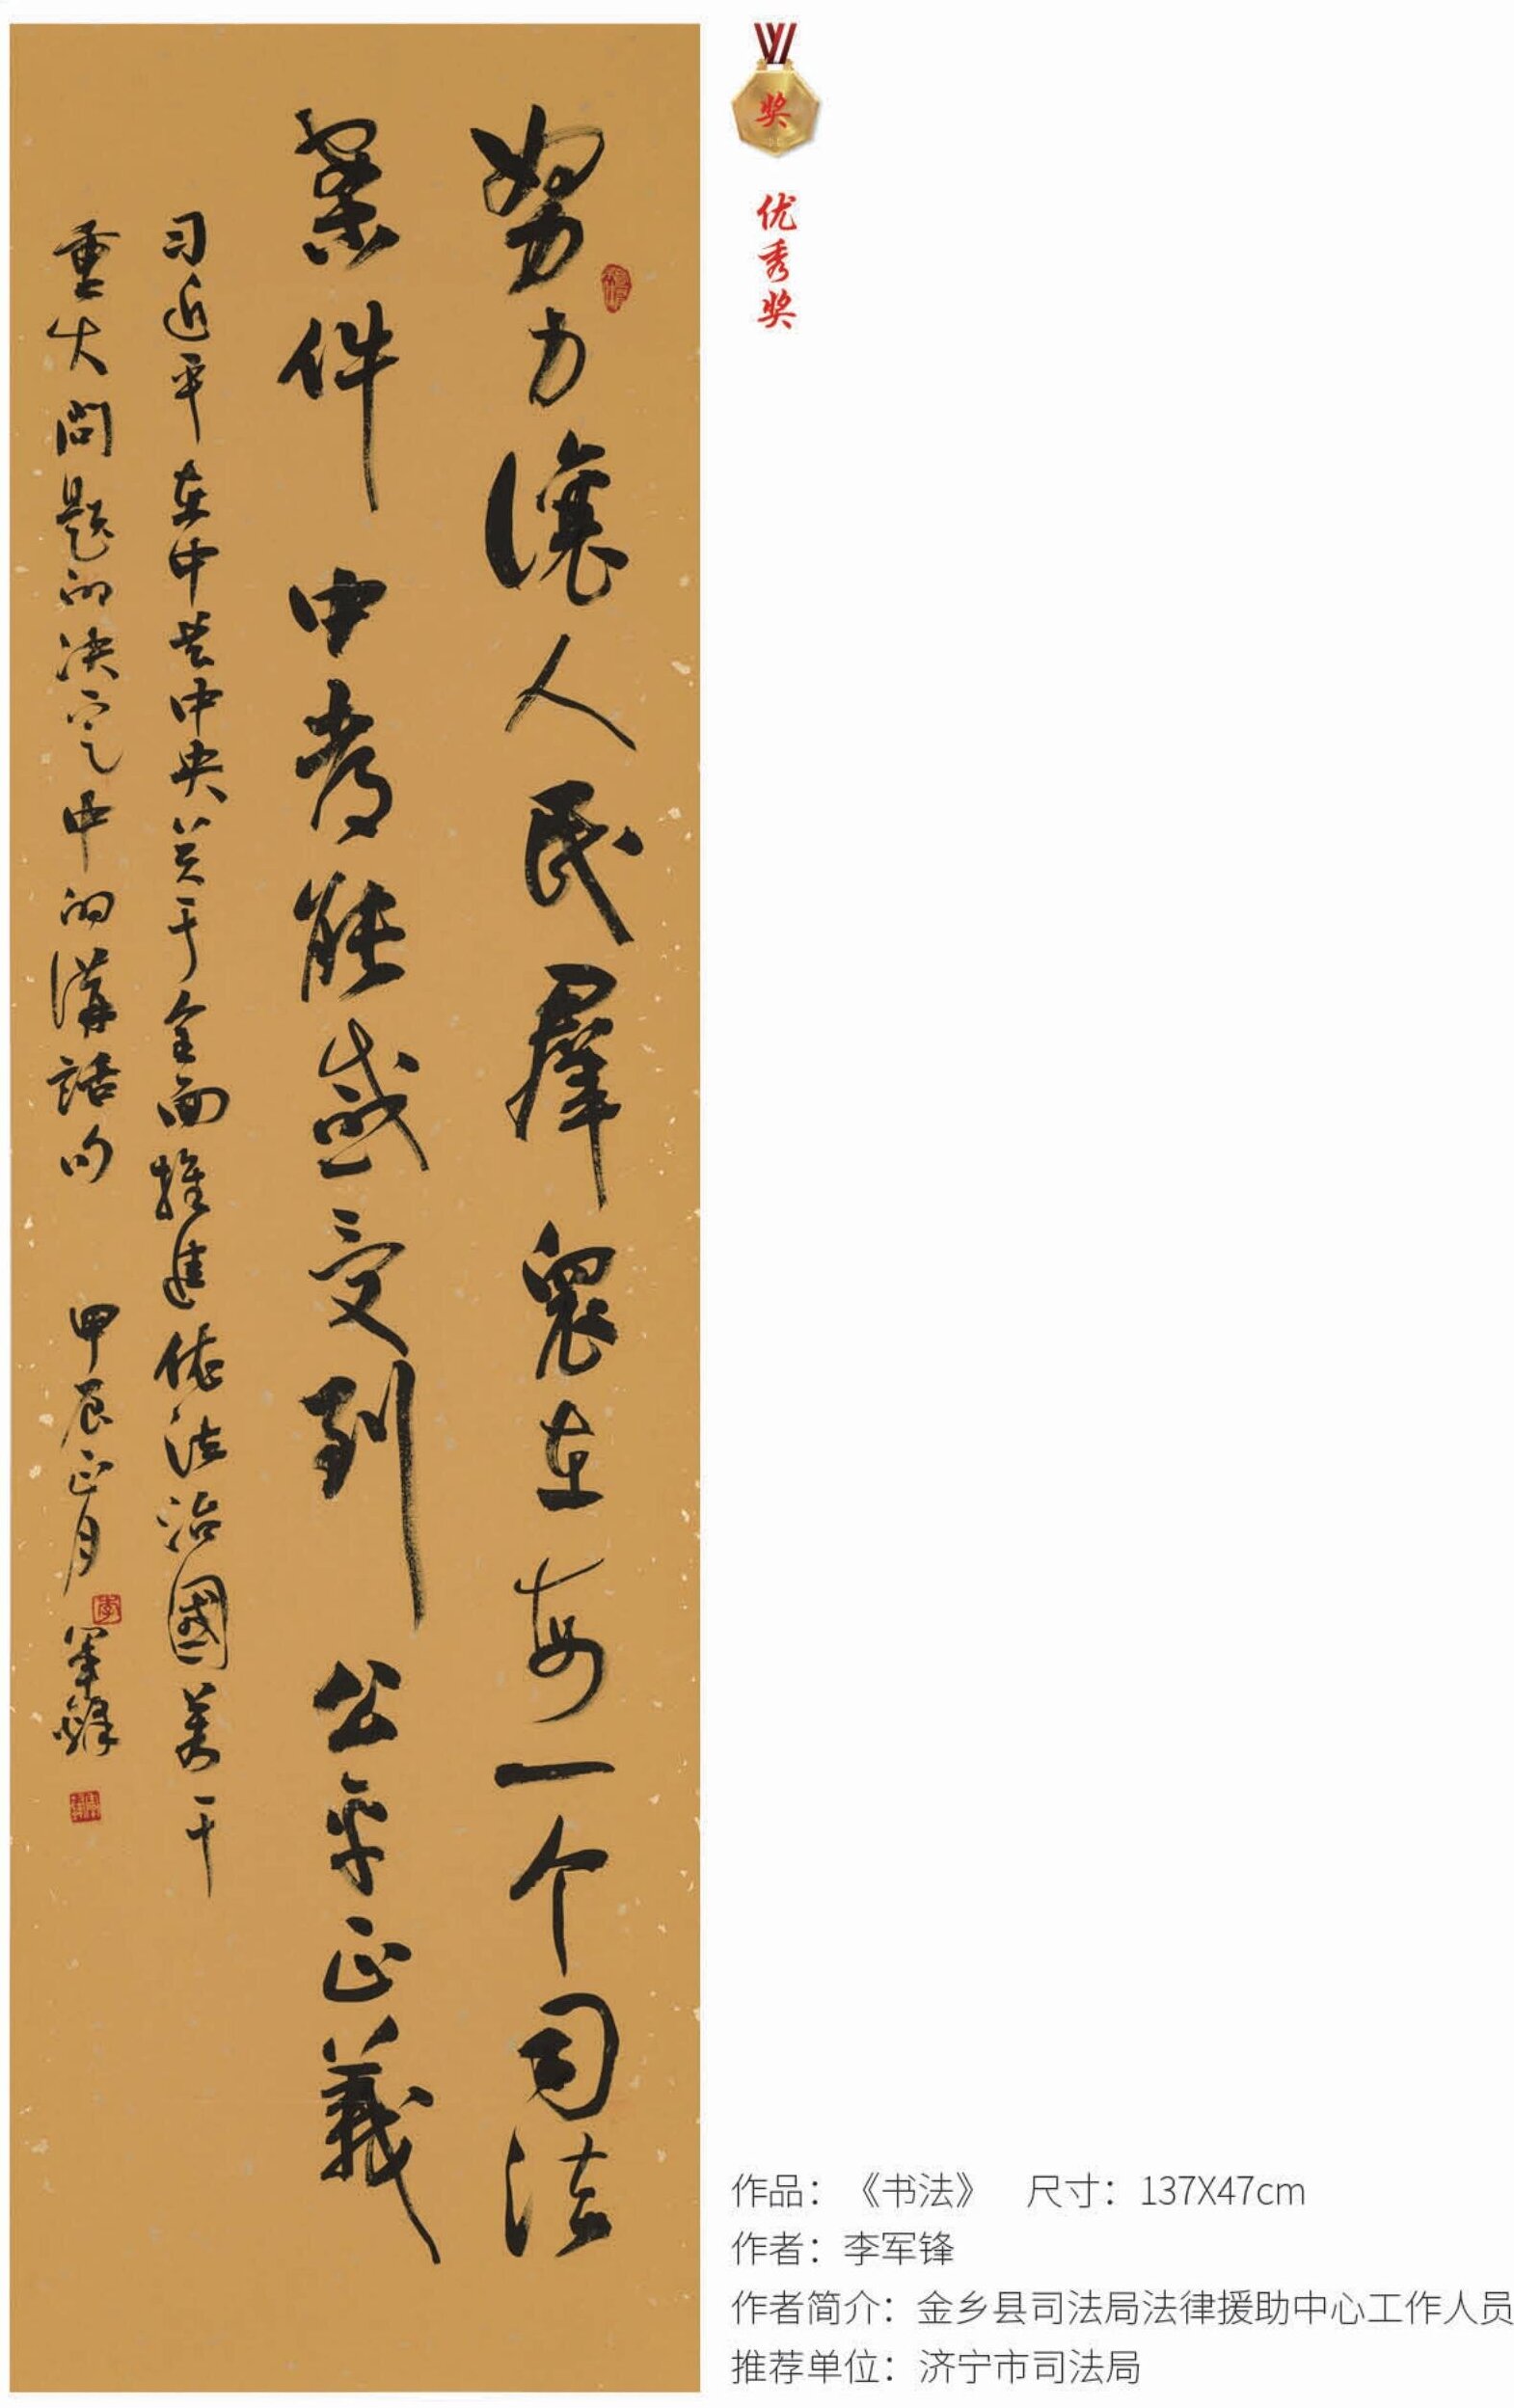 努力讓人民羣眾在每一个司法
案件中都能感受到公平正義
习近平在中共中央关于全面推進依法治國若干
重大問題的决定中的講話句 甲辰正月 軍鋒
李
奖
优秀奖
作品：《书法》 尺寸：137X47cm
作者：李军锋
作者简介：金乡县司法局法律援助中心工作人员
推荐单位：济宁市司法局